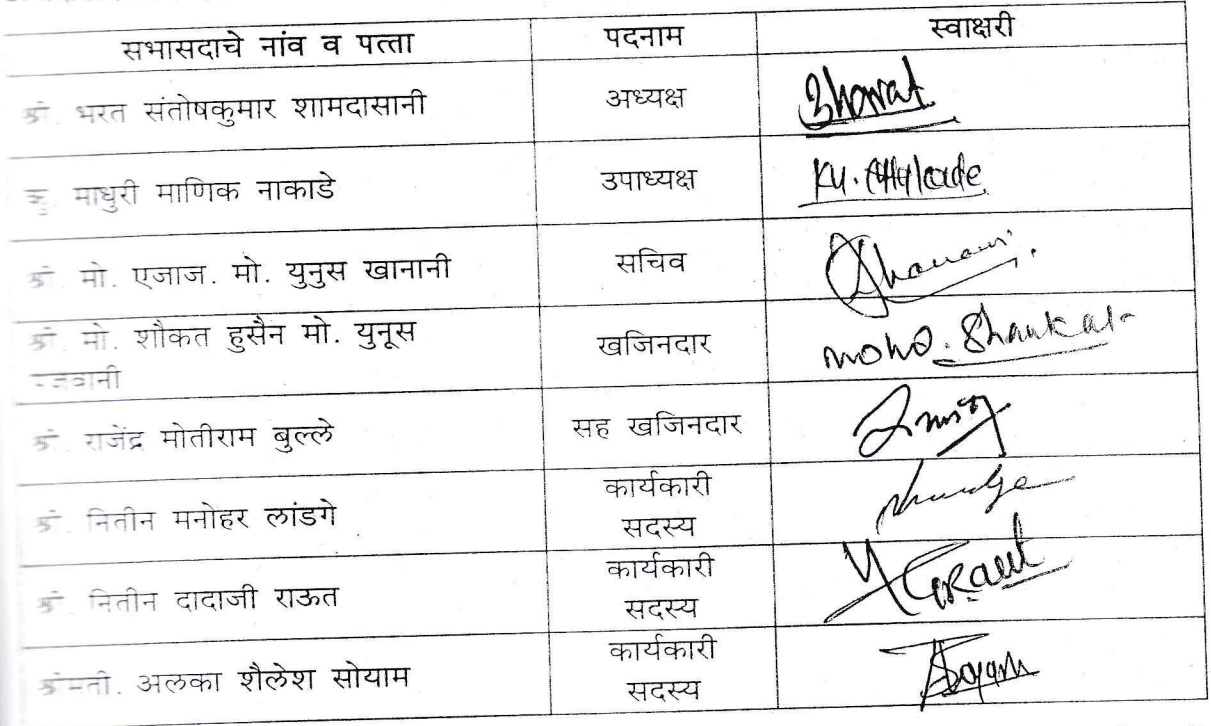 सभासदाचे नांव व पत्ता पदनाम स्वाक्षरी
श्री. भरत संतोषकुमार शामदासानी अध्यक्ष Bharat
कु. माधुरी माणिक नाकाडे उपाध्यक्ष Ku.
श्री. मो. एजाज. मो. युनुस खानानी सचिव
श्री. मो. शौकत हुसैन मो. युनूस खजिनदार Mohd. Shaukat
श्री. राजेंद्र मोतीराम बुल्ले सह खजिनदार
श्री. नितीन मनोहर लांडगे कार्यकारी
सदस्य
श्री. नितीन दादाजी राऊत कार्यकारी
सदस्य Raut
श्रीमती. अलका शैलेश सोयाम कार्यकारी
सदस्य